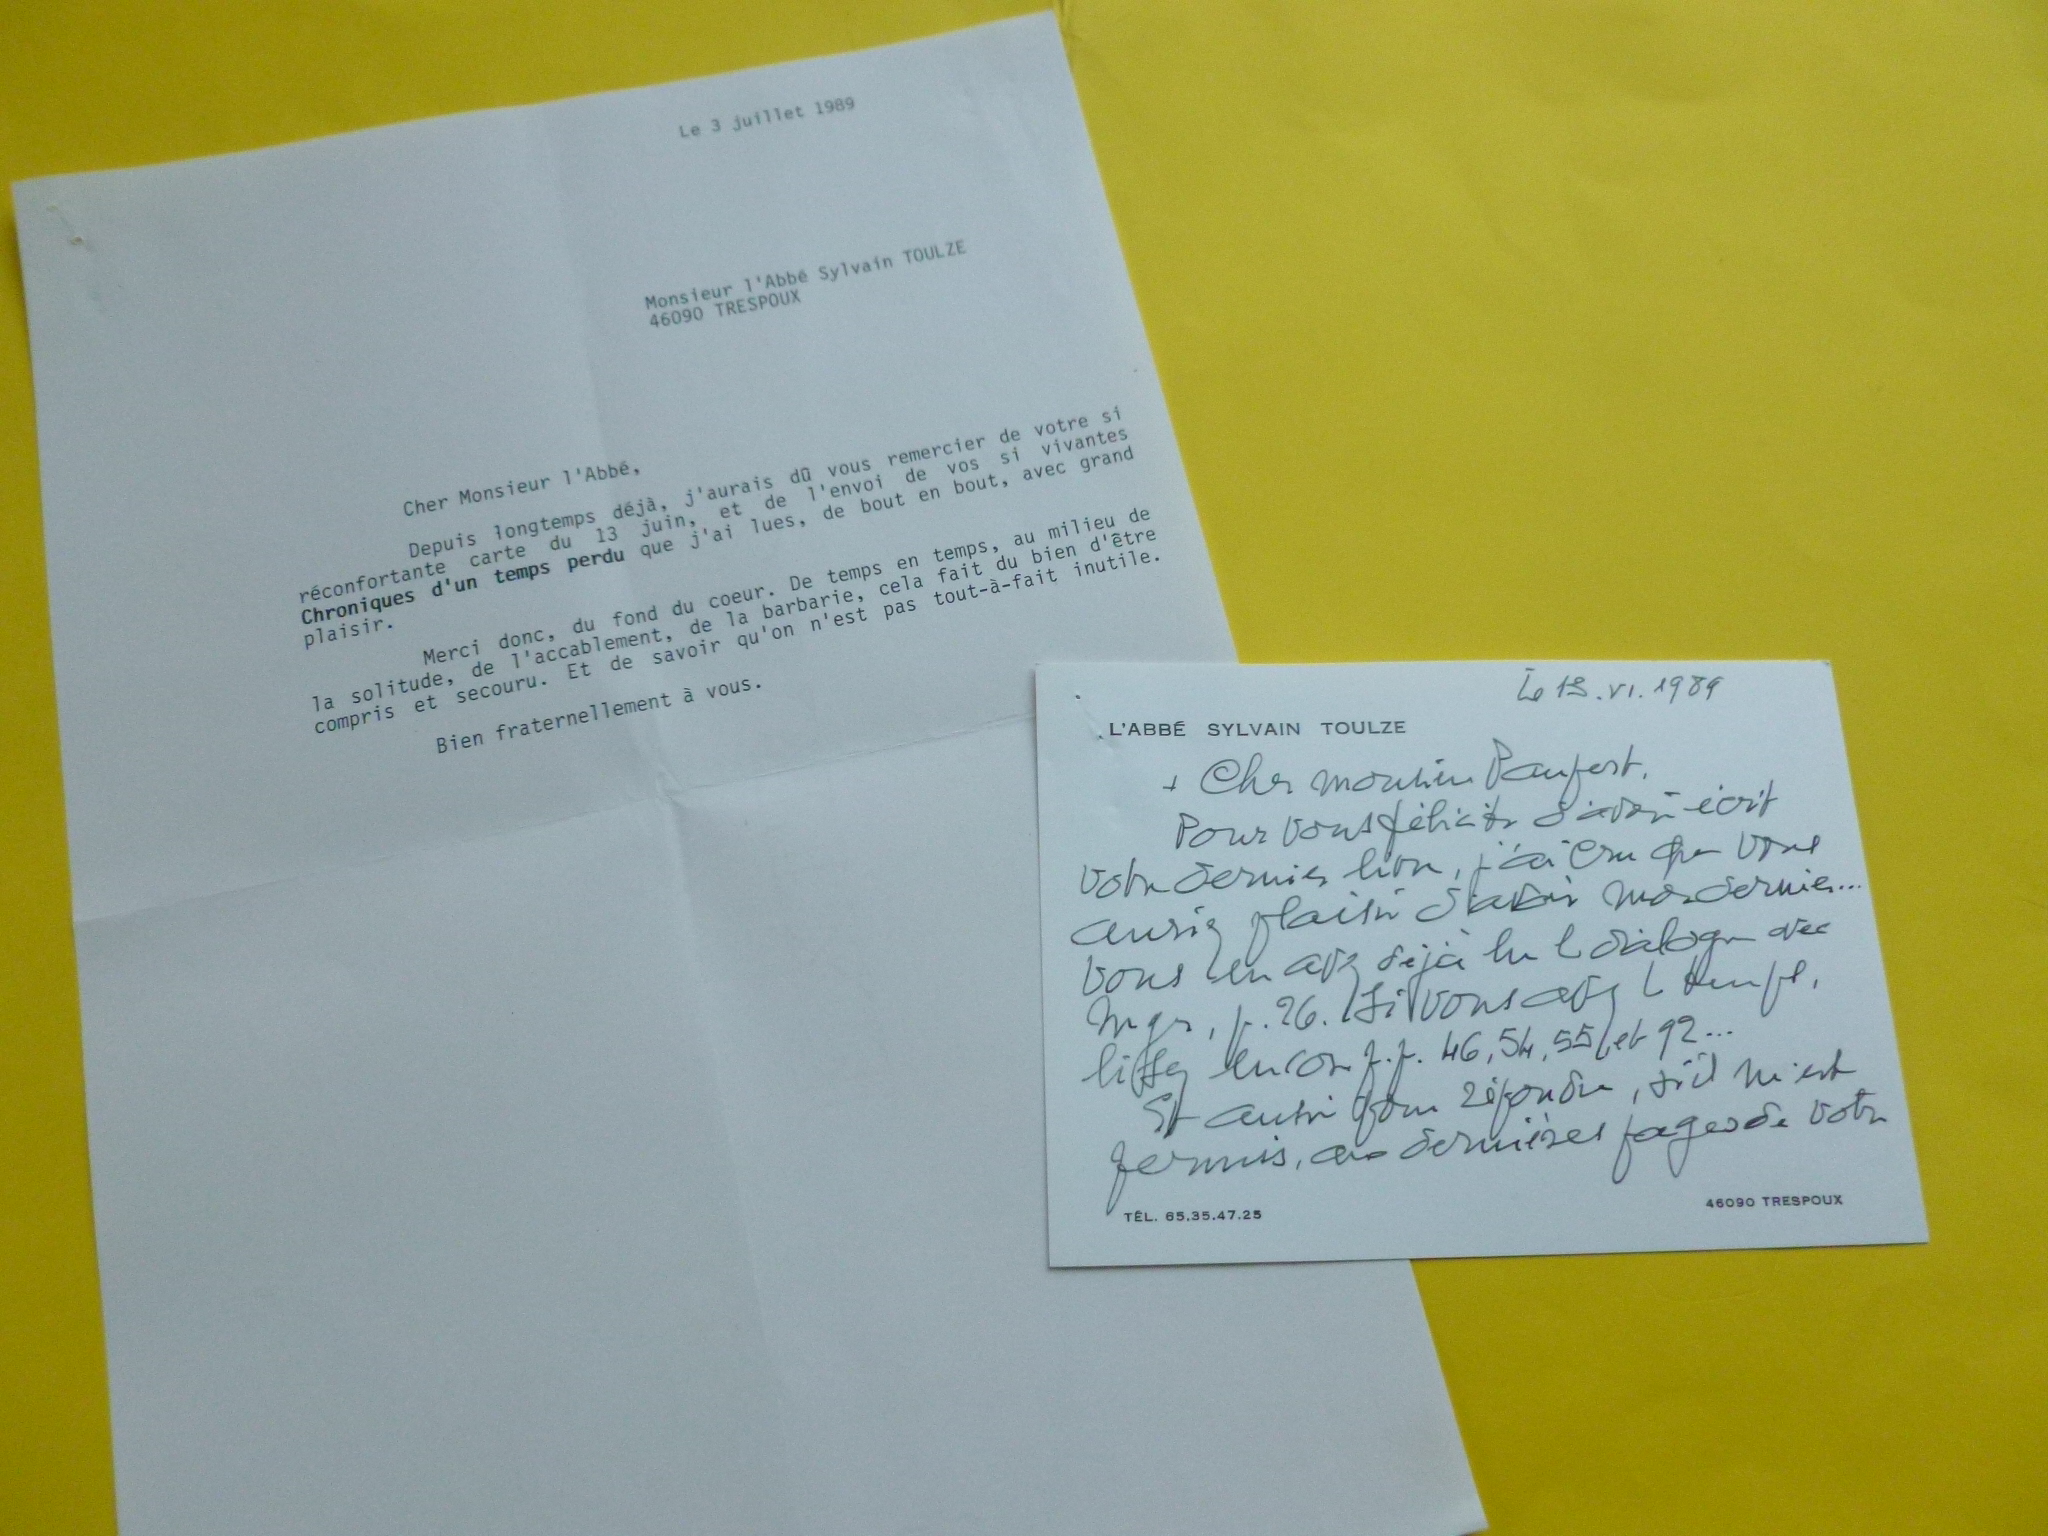 Le 3 juillet 1989
Monsieur l'Abbé Sylvain TOULZE
46090 TRESPOUX
Cher Monsieur l'Abbé,
Depuis longtemps déjà, j'aurais dû vous remercier de votre si
réconfortante carte du 13 juin, et de l'envoi de vos si vivantes
Chroniques d'un temps perdu que j'ai lues, de bout en bout, avec grand
plaisir.
Merci donc, du fond du coeur. De temps en temps, au milieu de
la solitude, de l'accablement, de la barbarie, cela fait du bien d'être
compris et secouru. Et de savoir qu'on n'est pas tout-à-fait inutile.
Bien fraternellement à vous.
Le 13.VI.1989
L'ABBÉ SYLVAIN TOULZE
+ Cher monsieur Paufert.
Pour vous féliciter d'avoir écrit
votre dernier livre, j'ai cru que vous
auriez plaisir d'avoir mon dernier...
Vous en avez déjà lu le dialogue avec
Mgr, p. 26. Si vous avez le temps,
lisez encore p.p. 46, 54, 55, et 92...
Et aussi pour répondre, s'il m'est
permis, aux dernières pages de votre
TÉL. 65.35.47.25
46090 TRESPOUX